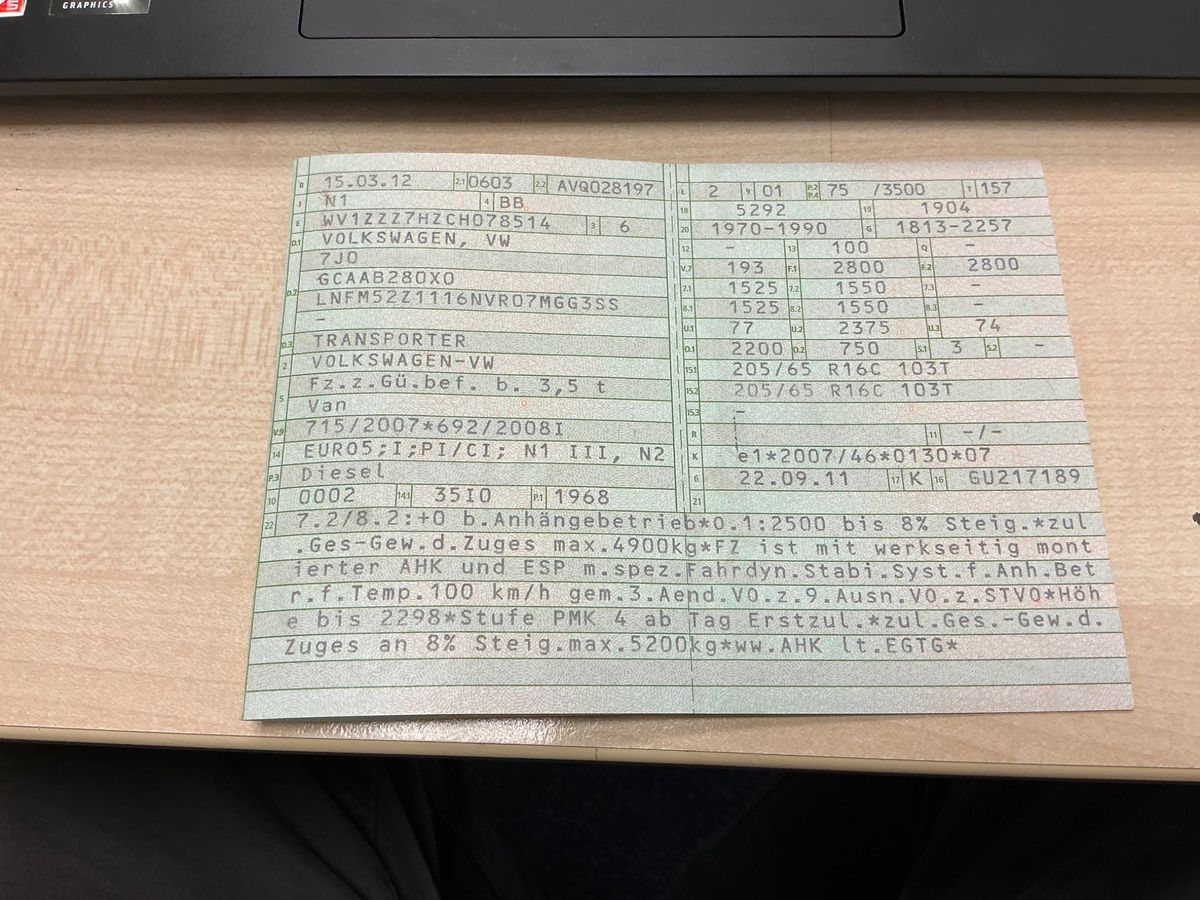 GRAPHICS
B 15.03.12 2.1 0603 2.2 AVQ028197
J N1 4 BB
E WV1ZZZ7HZCH078514 3 6
D.1 VOLKSWAGEN, VW
7J0
D.2 GCAAB280X0
LNFM52Z1116NVR07MGG3SS
-
D.3 TRANSPORTER
2 VOLKSWAGEN-VW
5 Fz.z.Gü.bef. b. 3,5 t
Van
V.9 715/2007*692/2008I
14 EURO5;I;PI/CI; N1 III, N2
P.3 Diesel
10 0002 14.1 35I0 P.1 1968
L 2 9 01 P.2 P.4 75 /3500 T 157
18 5292 19 1904
20 1970-1990 G 1813-2257
12 - 13 100 Q -
V.7 193 F.1 2800 F.2 2800
7.1 1525 7.2 1550 7.3 -
8.1 1525 8.2 1550 8.3 -
U.1 77 U.2 2375 U.3 74
O.1 2200 O.2 750 S.1 3 S.2 -
15.1 205/65 R16C 103T
15.2 205/65 R16C 103T
15.3 -
R 11 -/-
K e1*2007/46*0130*07
6 22.09.11 17 K 16 GU217189
21
22 7.2/8.2:+0 b.Anhängebetrieb*0.1:2500 bis 8% Steig.*zul
.Ges-Gew.d.Zuges max.4900kg*FZ ist mit werkseitig mont
ierter AHK und ESP m.spez.Fahrdyn.Stabi.Syst.f.Anh.Bet
r.f.Temp.100 km/h gem.3.Aend.VO.z.9.Ausn.VO.z.STVO*Höh
e bis 2298*Stufe PMK 4 ab Tag Erstzul.*zul.Ges.-Gew.d.
Zuges an 8% Steig.max.5200kg*ww.AHK lt.EGTG*